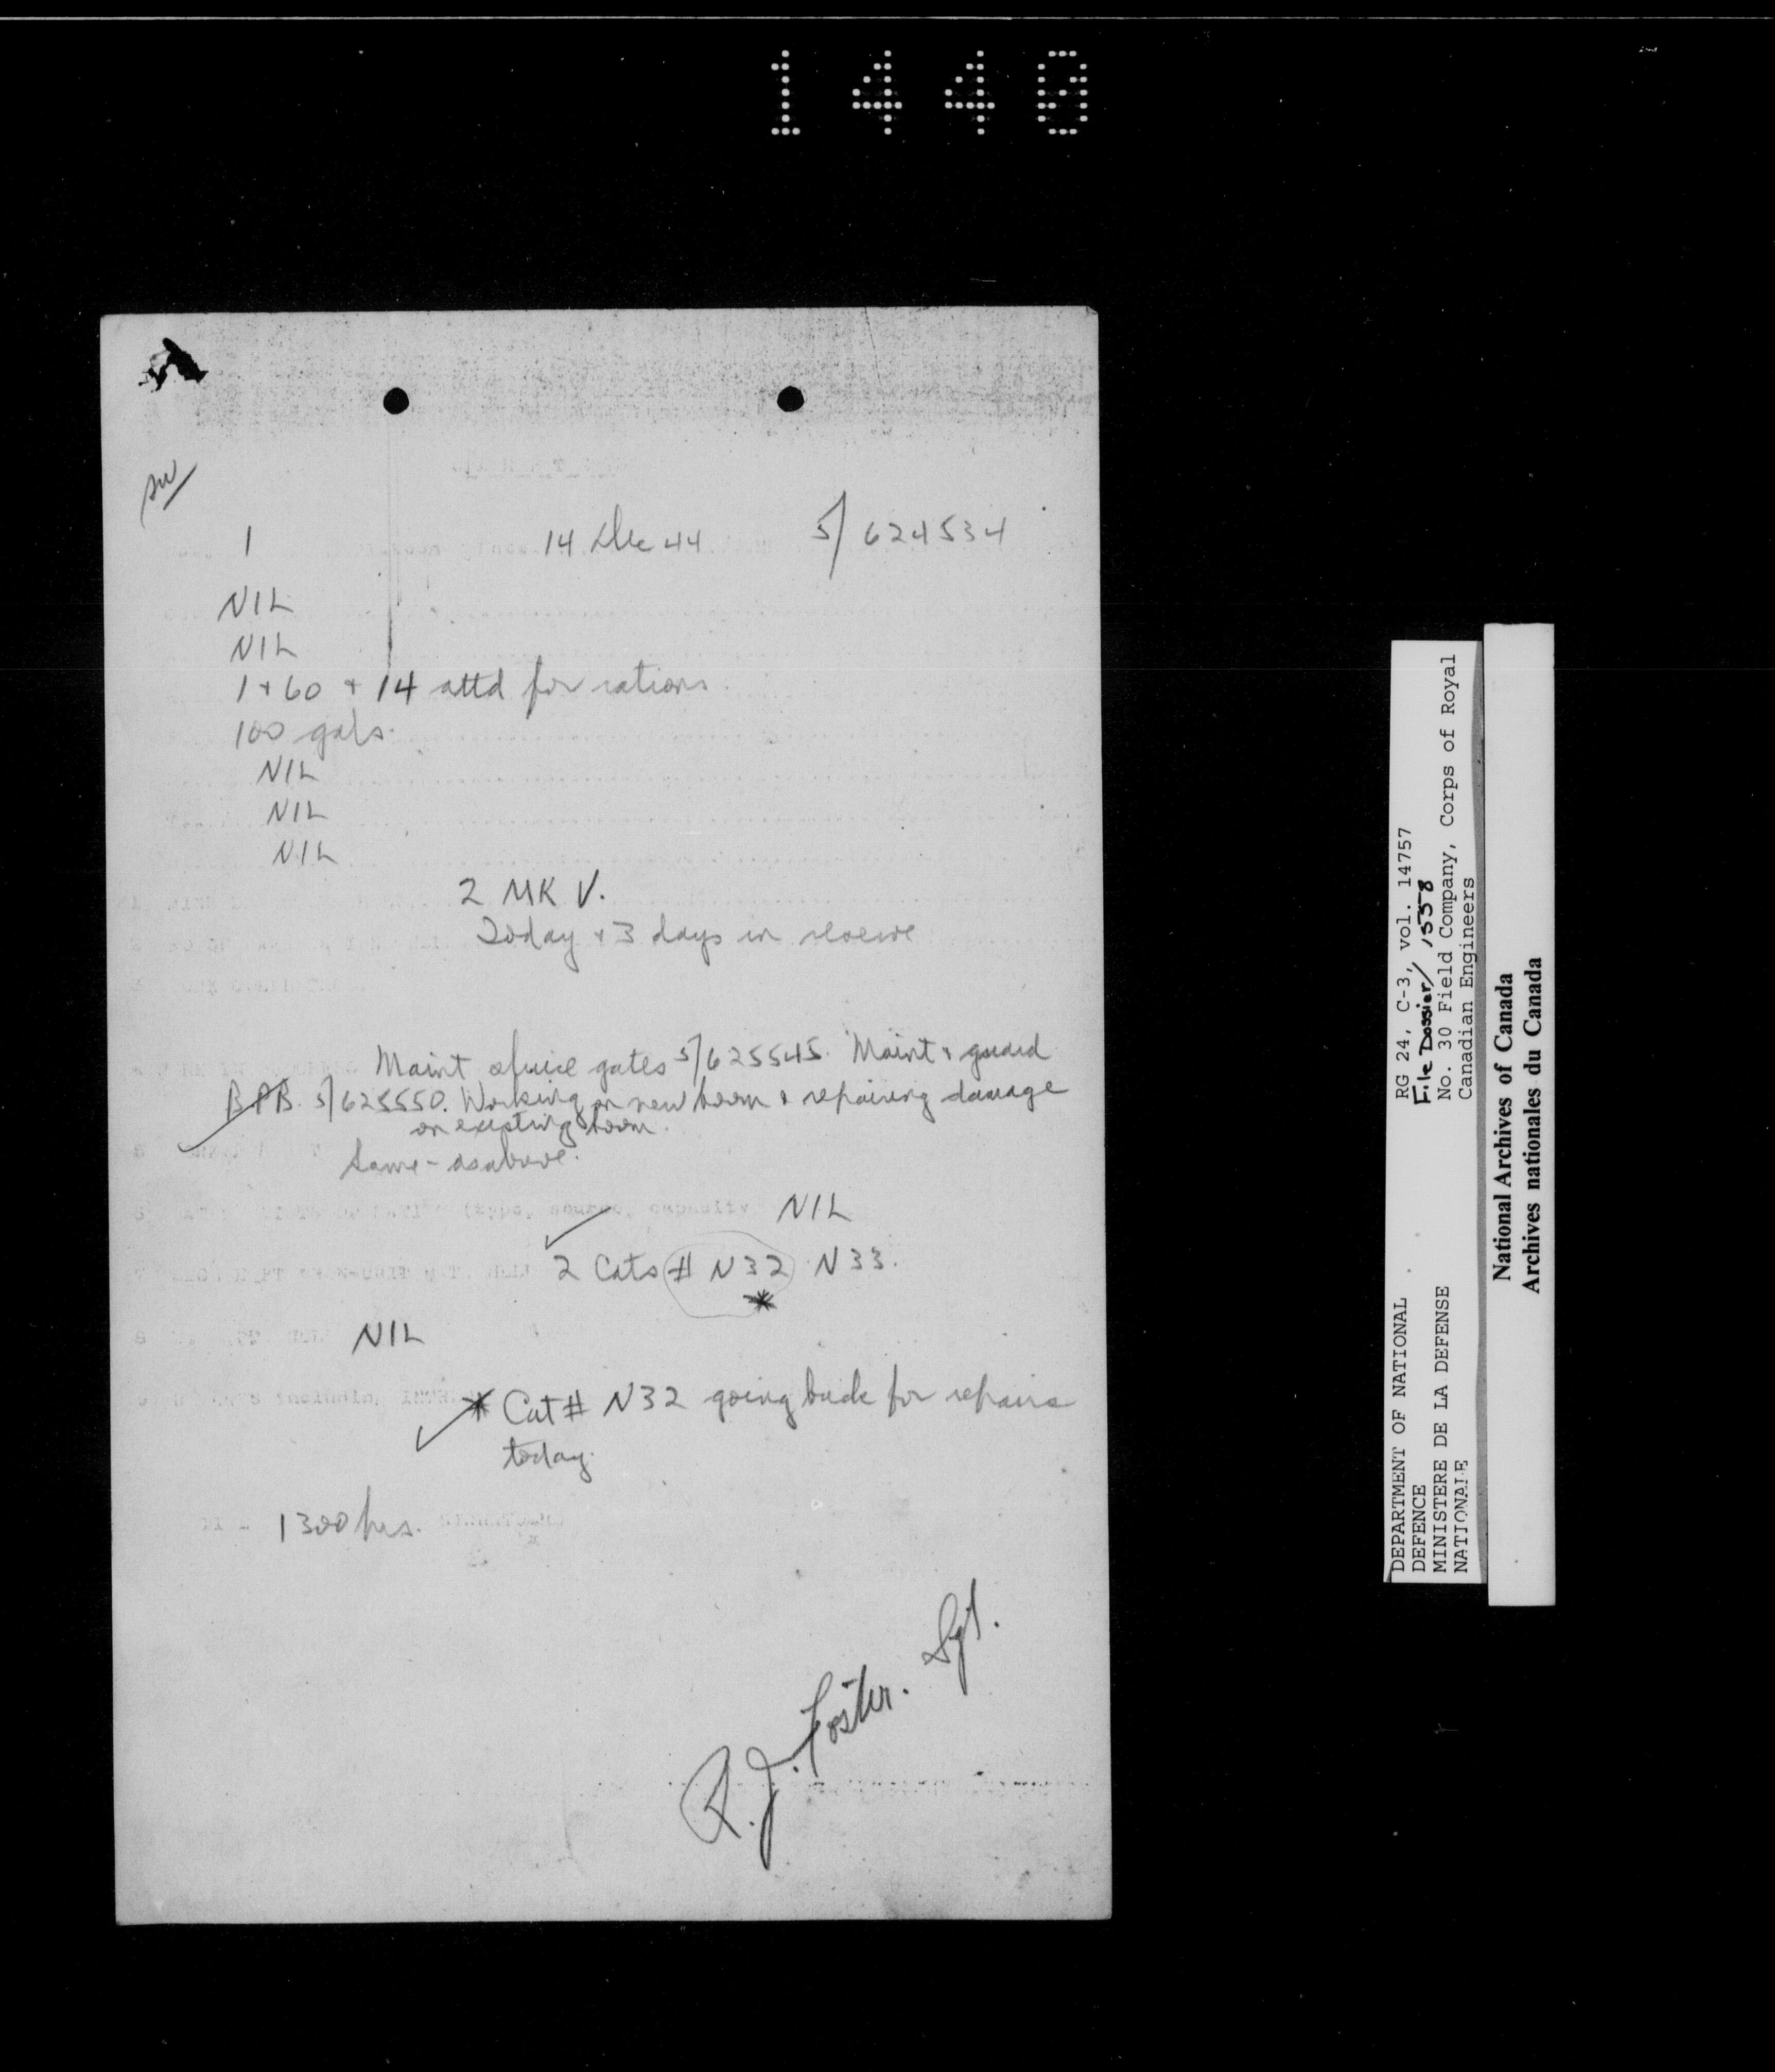 1440
1 14 Dec 44 5/ 624534
NIL
NIL
1 + 60 + 14 attd for rations.
100 gals.
NIL
NIL
NIL
2 MK V.
Today + 3 days in reserve
Maint sluice gates 5/625545. Maint & guard
BPB. 5/625550. Working on new boom & repairing damage
on existing boom.
Same - as above.
(type, source, capacity NIL
2 Cats # N32 N33.
*
NIL
* Cat # N32 going back for repairs
today.
1300 hrs.
R.J. Foster. Sgt.
RG 24, C-3, vol. 14757
File Dossier/ 1558
No. 30 Field Company, Corps of Royal
Canadian Engineers
DEPARTMENT OF NATIONAL
DEFENCE
MINISTERE DE LA DEFENSE
NATIONALE
National Archives of Canada
Archives nationales du Canada